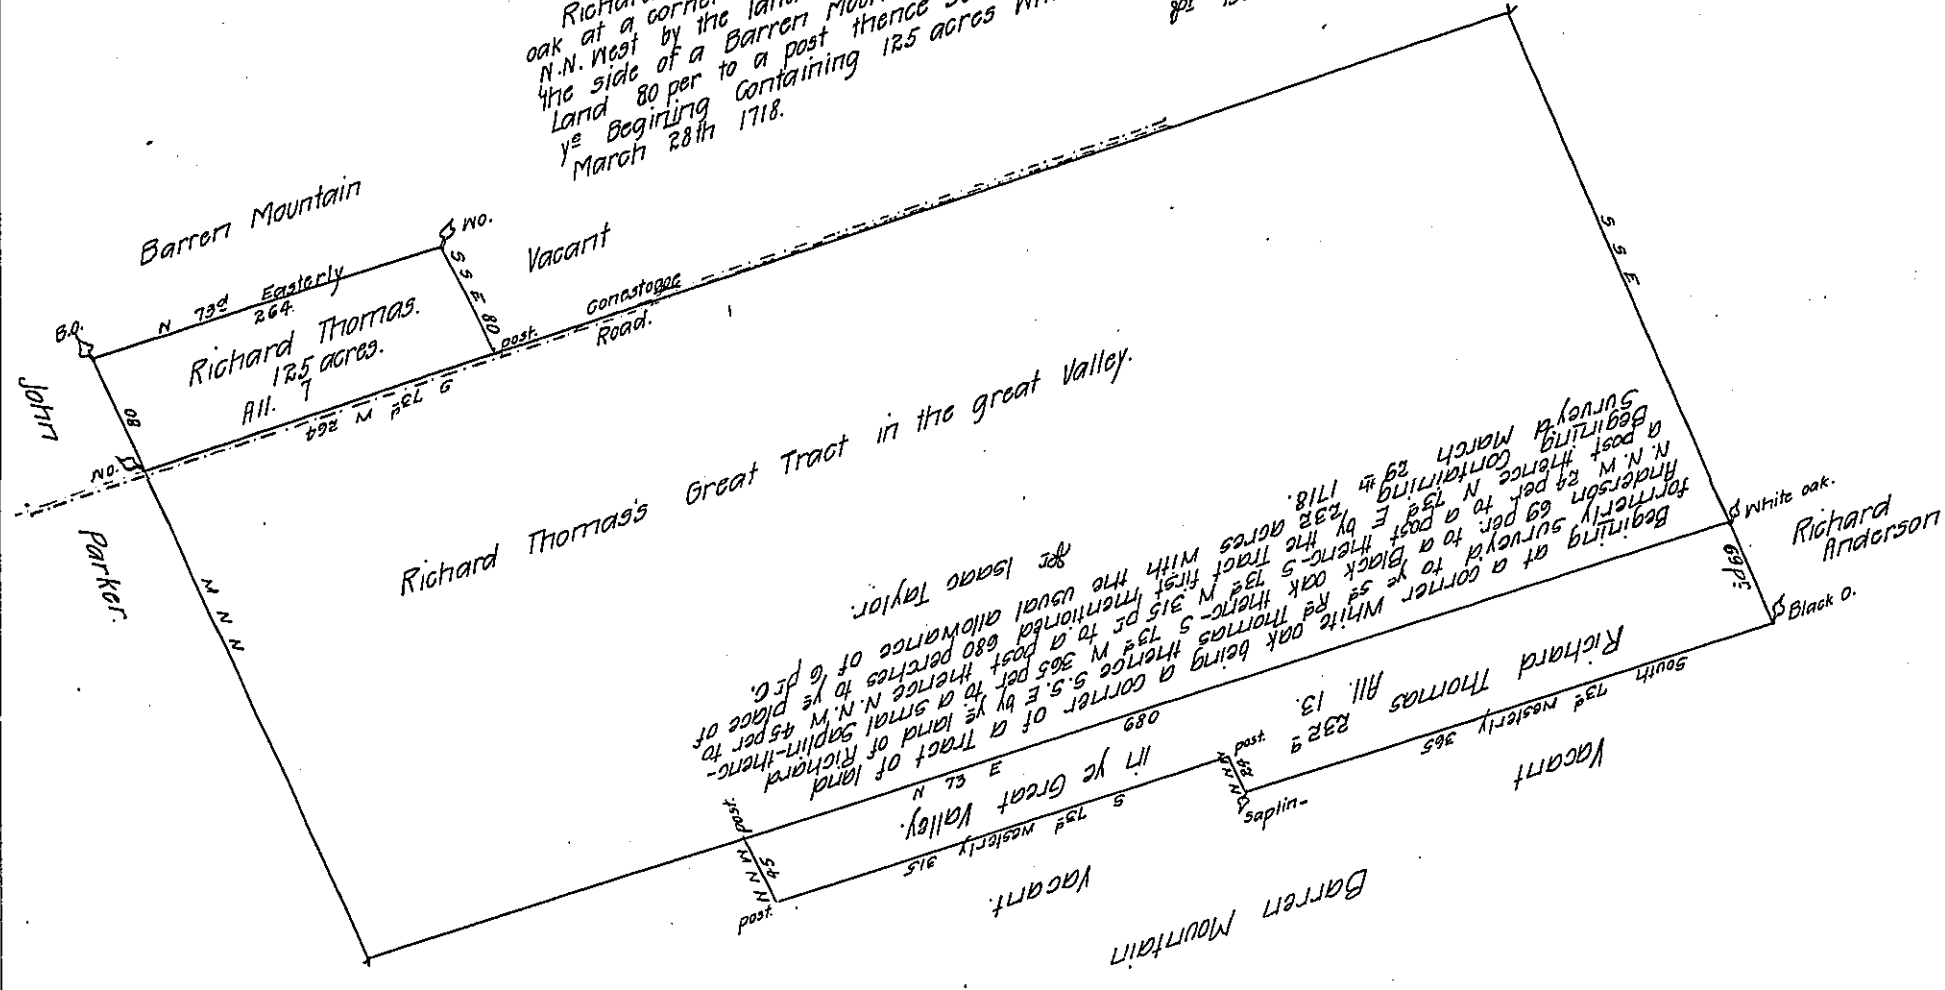 Richar
oak at a corner
N.N. West by the lan
the side of a Barren Mou
Land 80 per to a post thence
yᵉ Begining Containing 125 acres
March 28th 1718.
Barren Mountain
W.O.
Vacant
B.O.
N 73ᵈ Easterly
264
S S E 80
Richard Thomas.
125 acres.
All. 7
post.
Conestogoe
Road.
S 73ᵈ W 264
John
80
W.O.
Parker.
N N W
Richard Thomas's Great Tract in the great Valley.
S S E
White oak.
Richard
Anderson
69pᶜˢ
Black O.
Begining at a corner White oak being a corner of a Tract of land
formerly survey'd to yᵉ sᵈ Rᵈ Thomas thence S.S.E by yᵉ land of Richard
Anderson 69 per. to a Black oak thenc- S 73ᵈ W 365 per to a Smal Saplin-thenc-
N.N.W 24 per to a post thenc- S 73ᵈ W 315 pʳ to a post thence N.N.W 45 per to
a post thence N 73ᵈ E by the Tract first mentioned 680 perches to yᵉ place of
Begining Containing 232 acres with the usual allowance of 6 pʳ C.
Survey'd March 29th 1718.
pʳ Isaac Taylor.
N 73 E 680
Richard Thomas
232ᵃ All. 13.
in ye Great Valley.
South 73ᵈ westerly 365
Saplin-
N N W 24
post.
S 73ᵈ westerly 315
post.
N N W 45
post.
Vacant
Vacant.
Barren Mountain